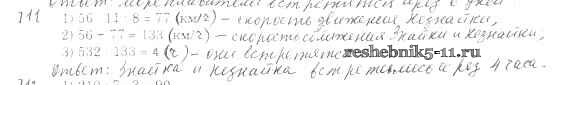 Ответ: встретятся через 6 дней
711 1) 56 : 11 · 8 = 77 (км/ч) – скорость движения Незнайки,
2) 56 + 77 = 133 (км/ч) – скорость сближения Знайки и Незнайки,
3) 532 : 133 = 4 (ч) – они встретятся
reshebnik5-11.ru
Ответ: Знайка и Незнайка встретились через 4 часа.